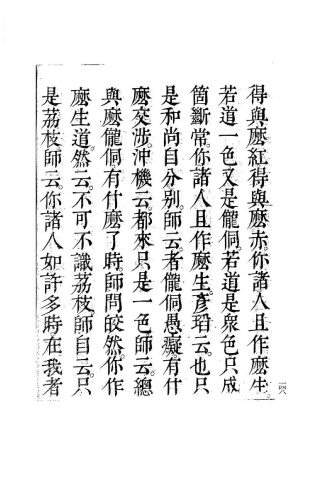 得與麼紅得與麼赤。你諸人且作麼生。
若道一色又是儱侗。若道是衆色只成
箇斷常。你諸人且作麼生。彥瑫云。也只
是和尚自分別。師云。者儱侗愚癡。有什
麼交涉。沖機云。都來只是一色。師云。總
與麼儱侗。有什麼了時。師問皎然。你作
麼生道。然云。不可不識荔枝。師自云。只
是荔枝師云。你諸人如許多時在我者